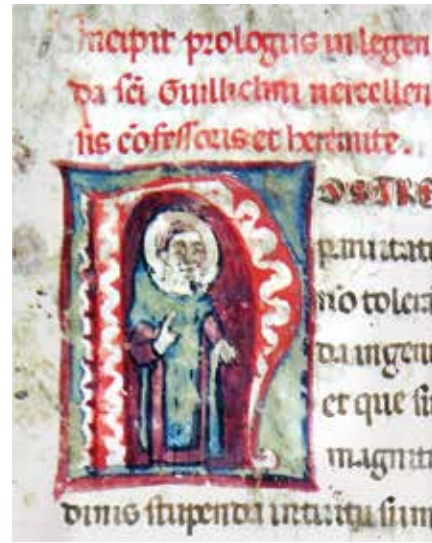 Incipit prologus in legen
da sci Guillielmi uercellen
sis cofessoris et heremite.
NOSTRE
paruitati
no toler
da ingen
et que sir
magnitu
dinis stupenda intuitu sum